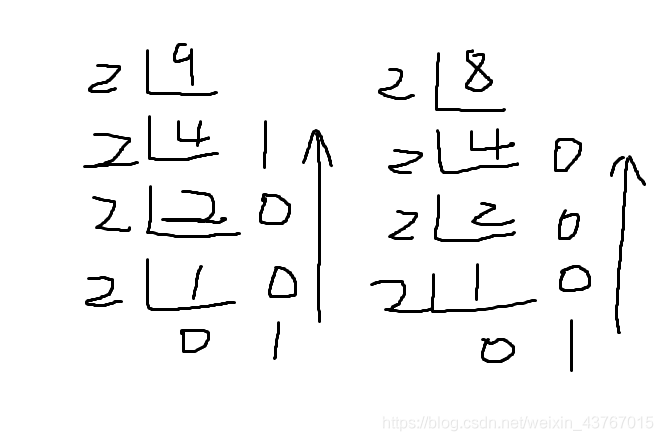 2 9
2 4 1
2 2 0
2 1 0
0 1
2 8
2 4 0
2 2 0
2 1 0
0 1
https://blog.csdn.net/weixin_43767015